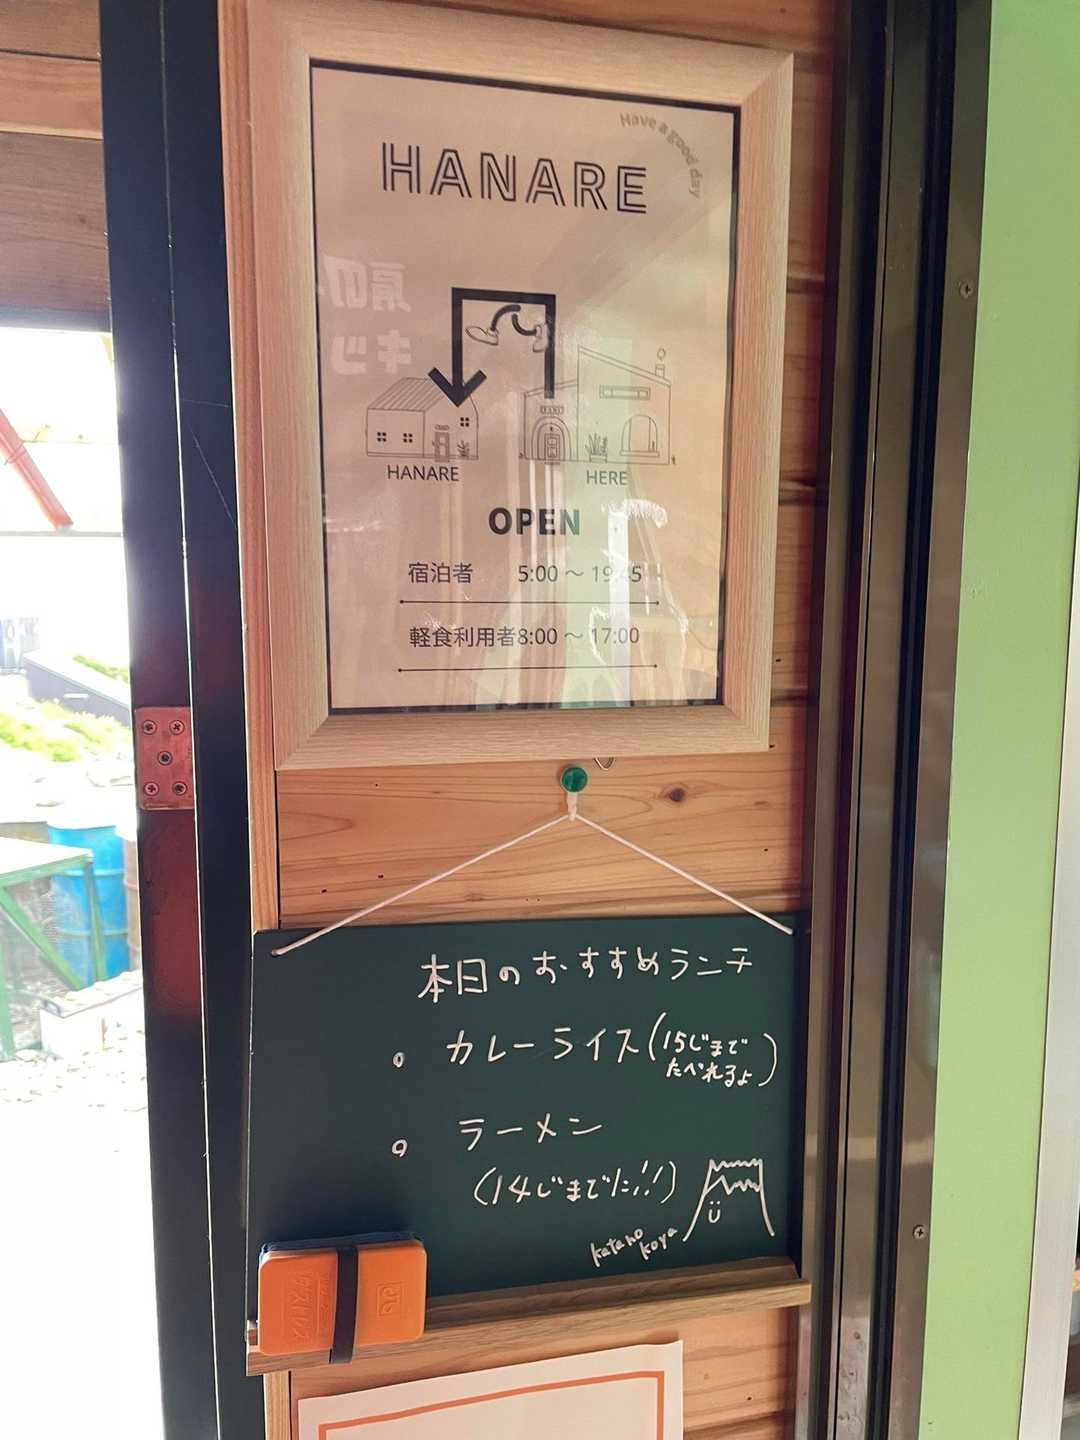 Have a good day
HANARE
HANARE
HERE
OPEN
宿泊者 5:00 ～ 19:45
軽食利用者8:00 ～ 17:00
本日のおすすめランチ
。カレーライス(15じまで
たべれるよ)
。ラーメン
(14じまでだ!!)
katano
koya